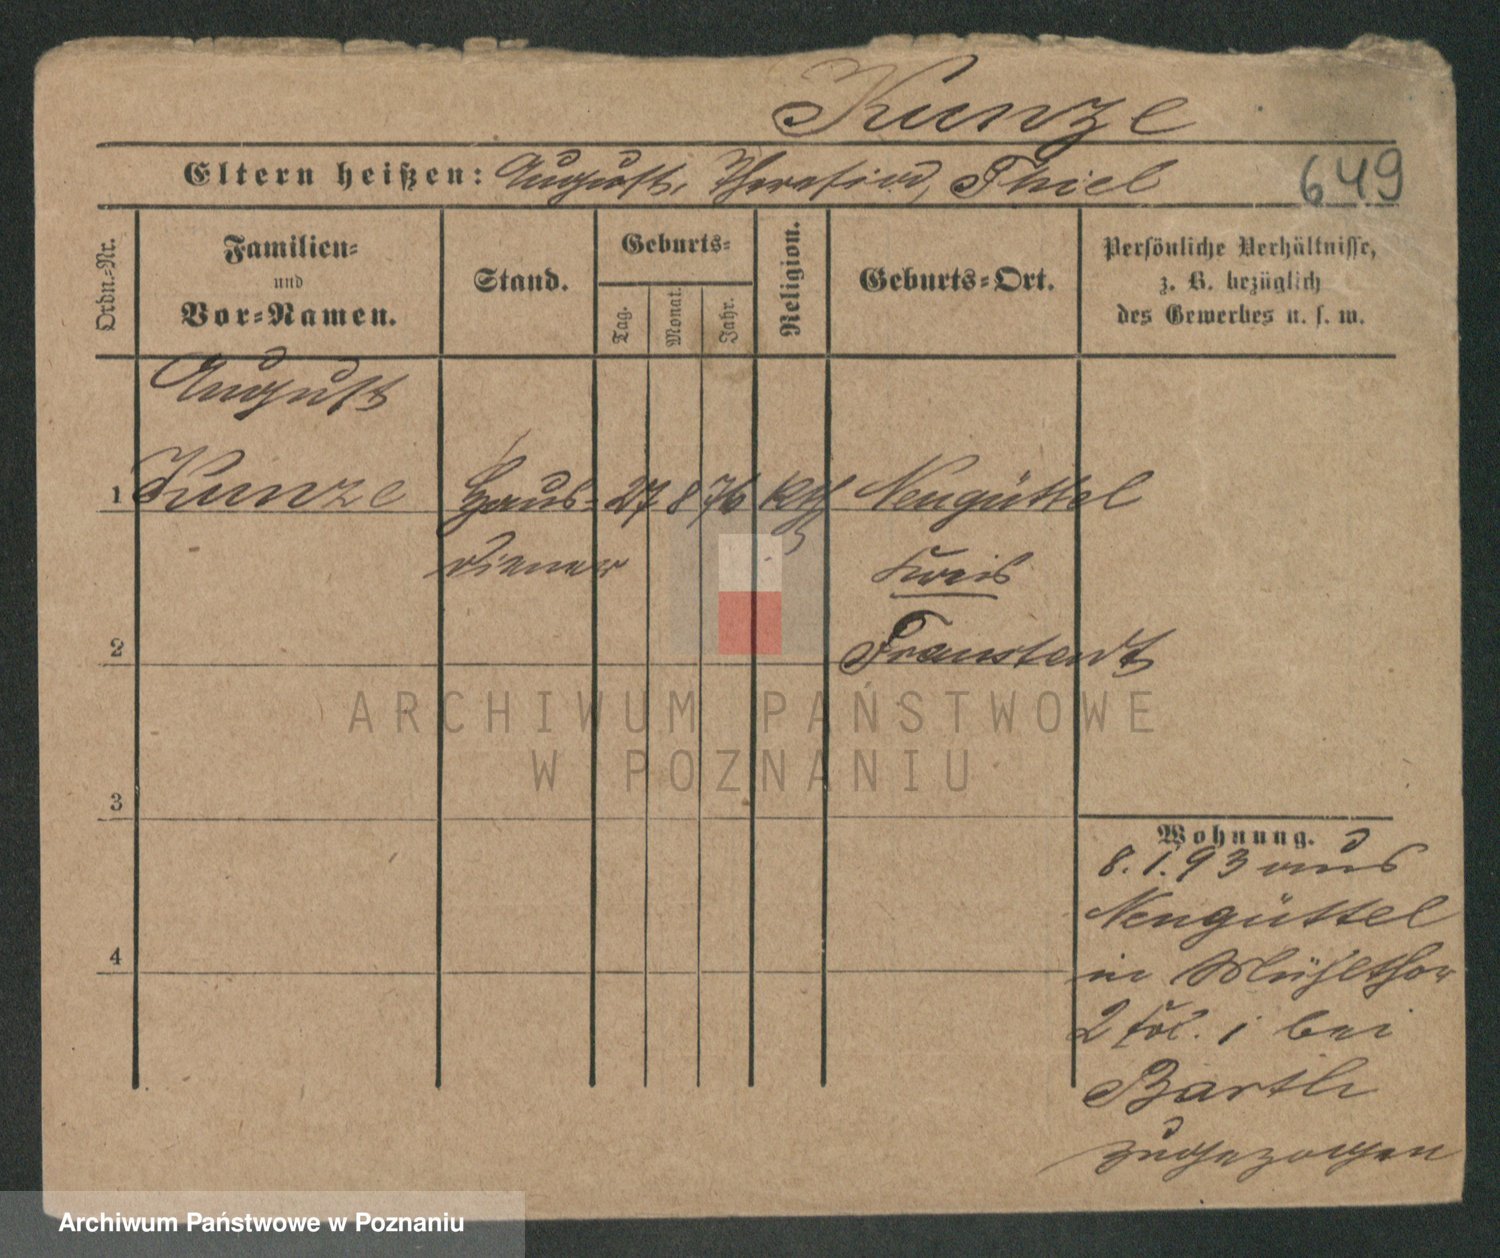 Kunze
Eltern heißen: August, Theresia, Thiel
649
Ordn.-Nr.
Familien-
und
Vor-Namen.
Stand.
Geburts-
Tag.
Monat.
Jahr.
Religion.
Geburts-Ort.
Persönliche Verhältnisse,
z. B. bezüglich
des Gewerbes u. s. w.
August
1 Kunze Haus- 27 8 76 kth Neugüttel
diener Kreis
2 Fraustadt
ARCHIWUM PAŃSTWOWE
W POZNANIU
3
Wohnung.
8.1.93 aus
Neugüttel
4
in Mühlthor
2 bei
Barth
zugezogen
Archiwum Państwowe w Poznaniu